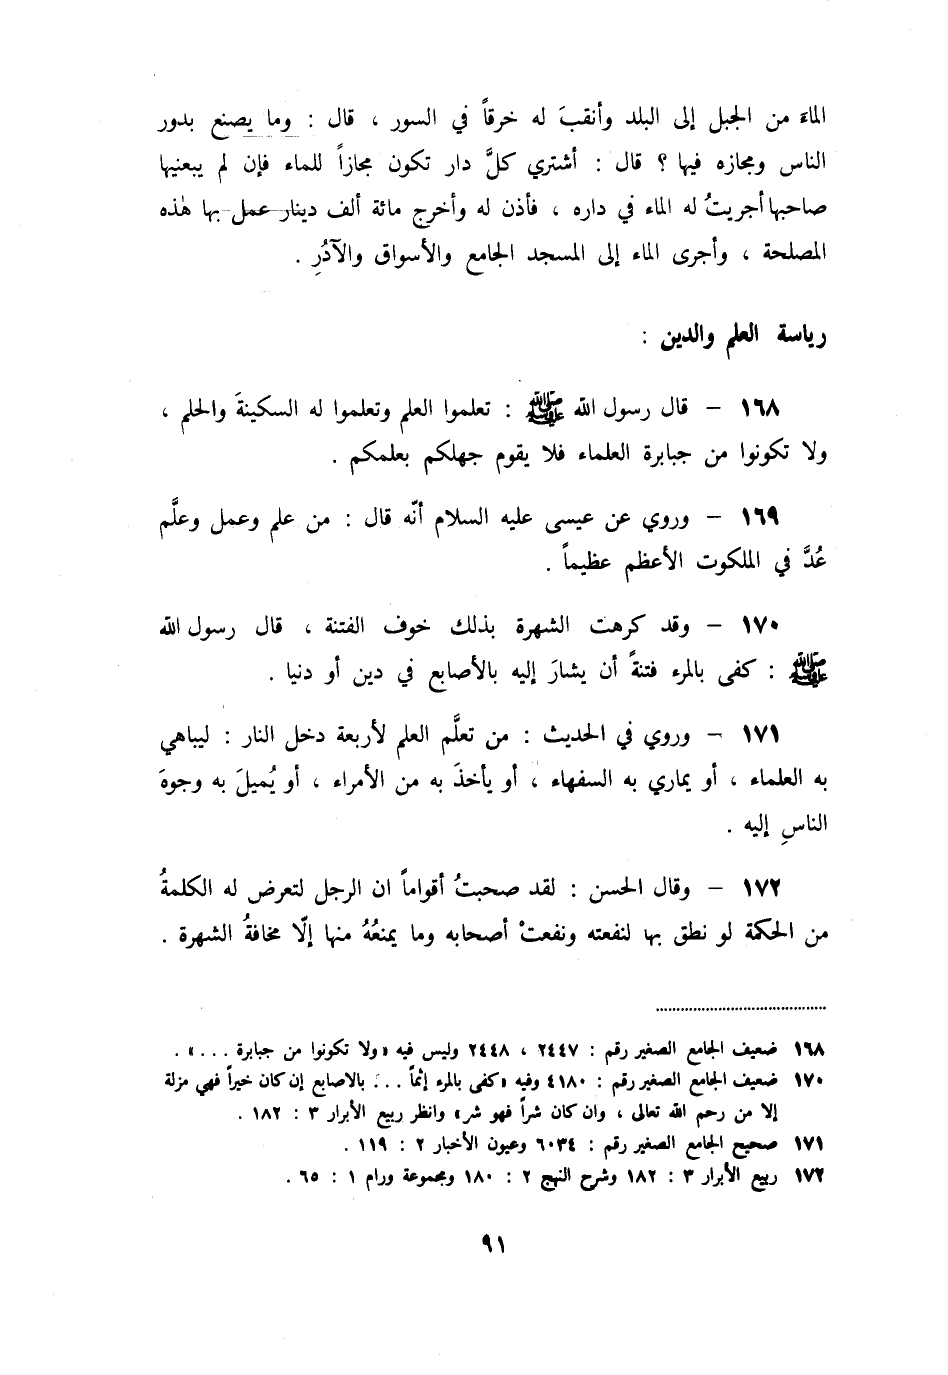 الماءَ من الجبل إلى البلد وأنقبَ له خرقاً في السور ، قال : وما يصنع بدور
الناس ومجازه فيها ؟ قال : أشتري كلَّ دار تكون مجازاً للماء فإن لم يبعنيها
صاحبها أجريتُ له الماء في داره ، فأذن له وأخرج مائة ألف دينار عمل بها هٰذه
المصلحة ، وأجرى الماء إلى المسجد الجامع والأسواق والآدُرِ .
رياسة العلم والدين :
١٦٨ – قال رسول الله ﷺ : تعلموا العلم وتعلموا له السكينةَ والحلم ،
ولا تكونوا من جبابرة العلماء فلا يقوم جهلكم بعلمكم .
١٦٩ – وروي عن عيسى عليه السلام أنّه قال : من علم وعمل وعلَّم
عُدَّ في الملكوت الأعظم عظيماً .
١٧٠ – وقد كرهت الشهرة بذلك خوف الفتنة ، قال رسول الله
ﷺ : كفى بالمرء فتنةً أن يشارَ إليه بالأصابع في دين أو دنيا .
١٧١ – وروي في الحديث : من تعلَّم العلم لأربعة دخل النار : ليباهي
به العلماء ، أو يماري به السفهاء ، أو يأخذَ به من الأمراء ، أو يُميلَ به وجوهَ
الناسِ إليه .
١٧٢ – وقال الحسن : لقد صحبتُ أقواماً ان الرجل لتعرض له الكلمةُ
من الحكمة لو نطق بها لنفعته ونفعتْ أصحابه وما يمنعُهُ منها إلّا مخافةُ الشهرة .
١٦٨ ضعيف الجامع الصغير رقم : ٢٤٤٧ ، ٢٤٤٨ وليس فيه «ولا تكونوا من جبابرة . . .» .
١٧٠ ضعيف الجامع الصغير رقم : ٤١٨٠ وفيه «كفى بالمرء إثماً . . . بالاصابع إن كان خيراً فهي مزلة
إلا من رحم الله تعالى ، وان كان شراً فهو شر» وانظر ربيع الأبرار ٣ : ١٨٢ .
١٧١ صحيح الجامع الصغير رقم : ٦٠٣٤ وعيون الأخبار ٢ : ١١٩ .
١٧٢ ربيع الأبرار ٣ : ١٨٢ وشرح النهج ٢ : ١٨٠ ومجموعة ورام ١ : ٦٥ .
٩١